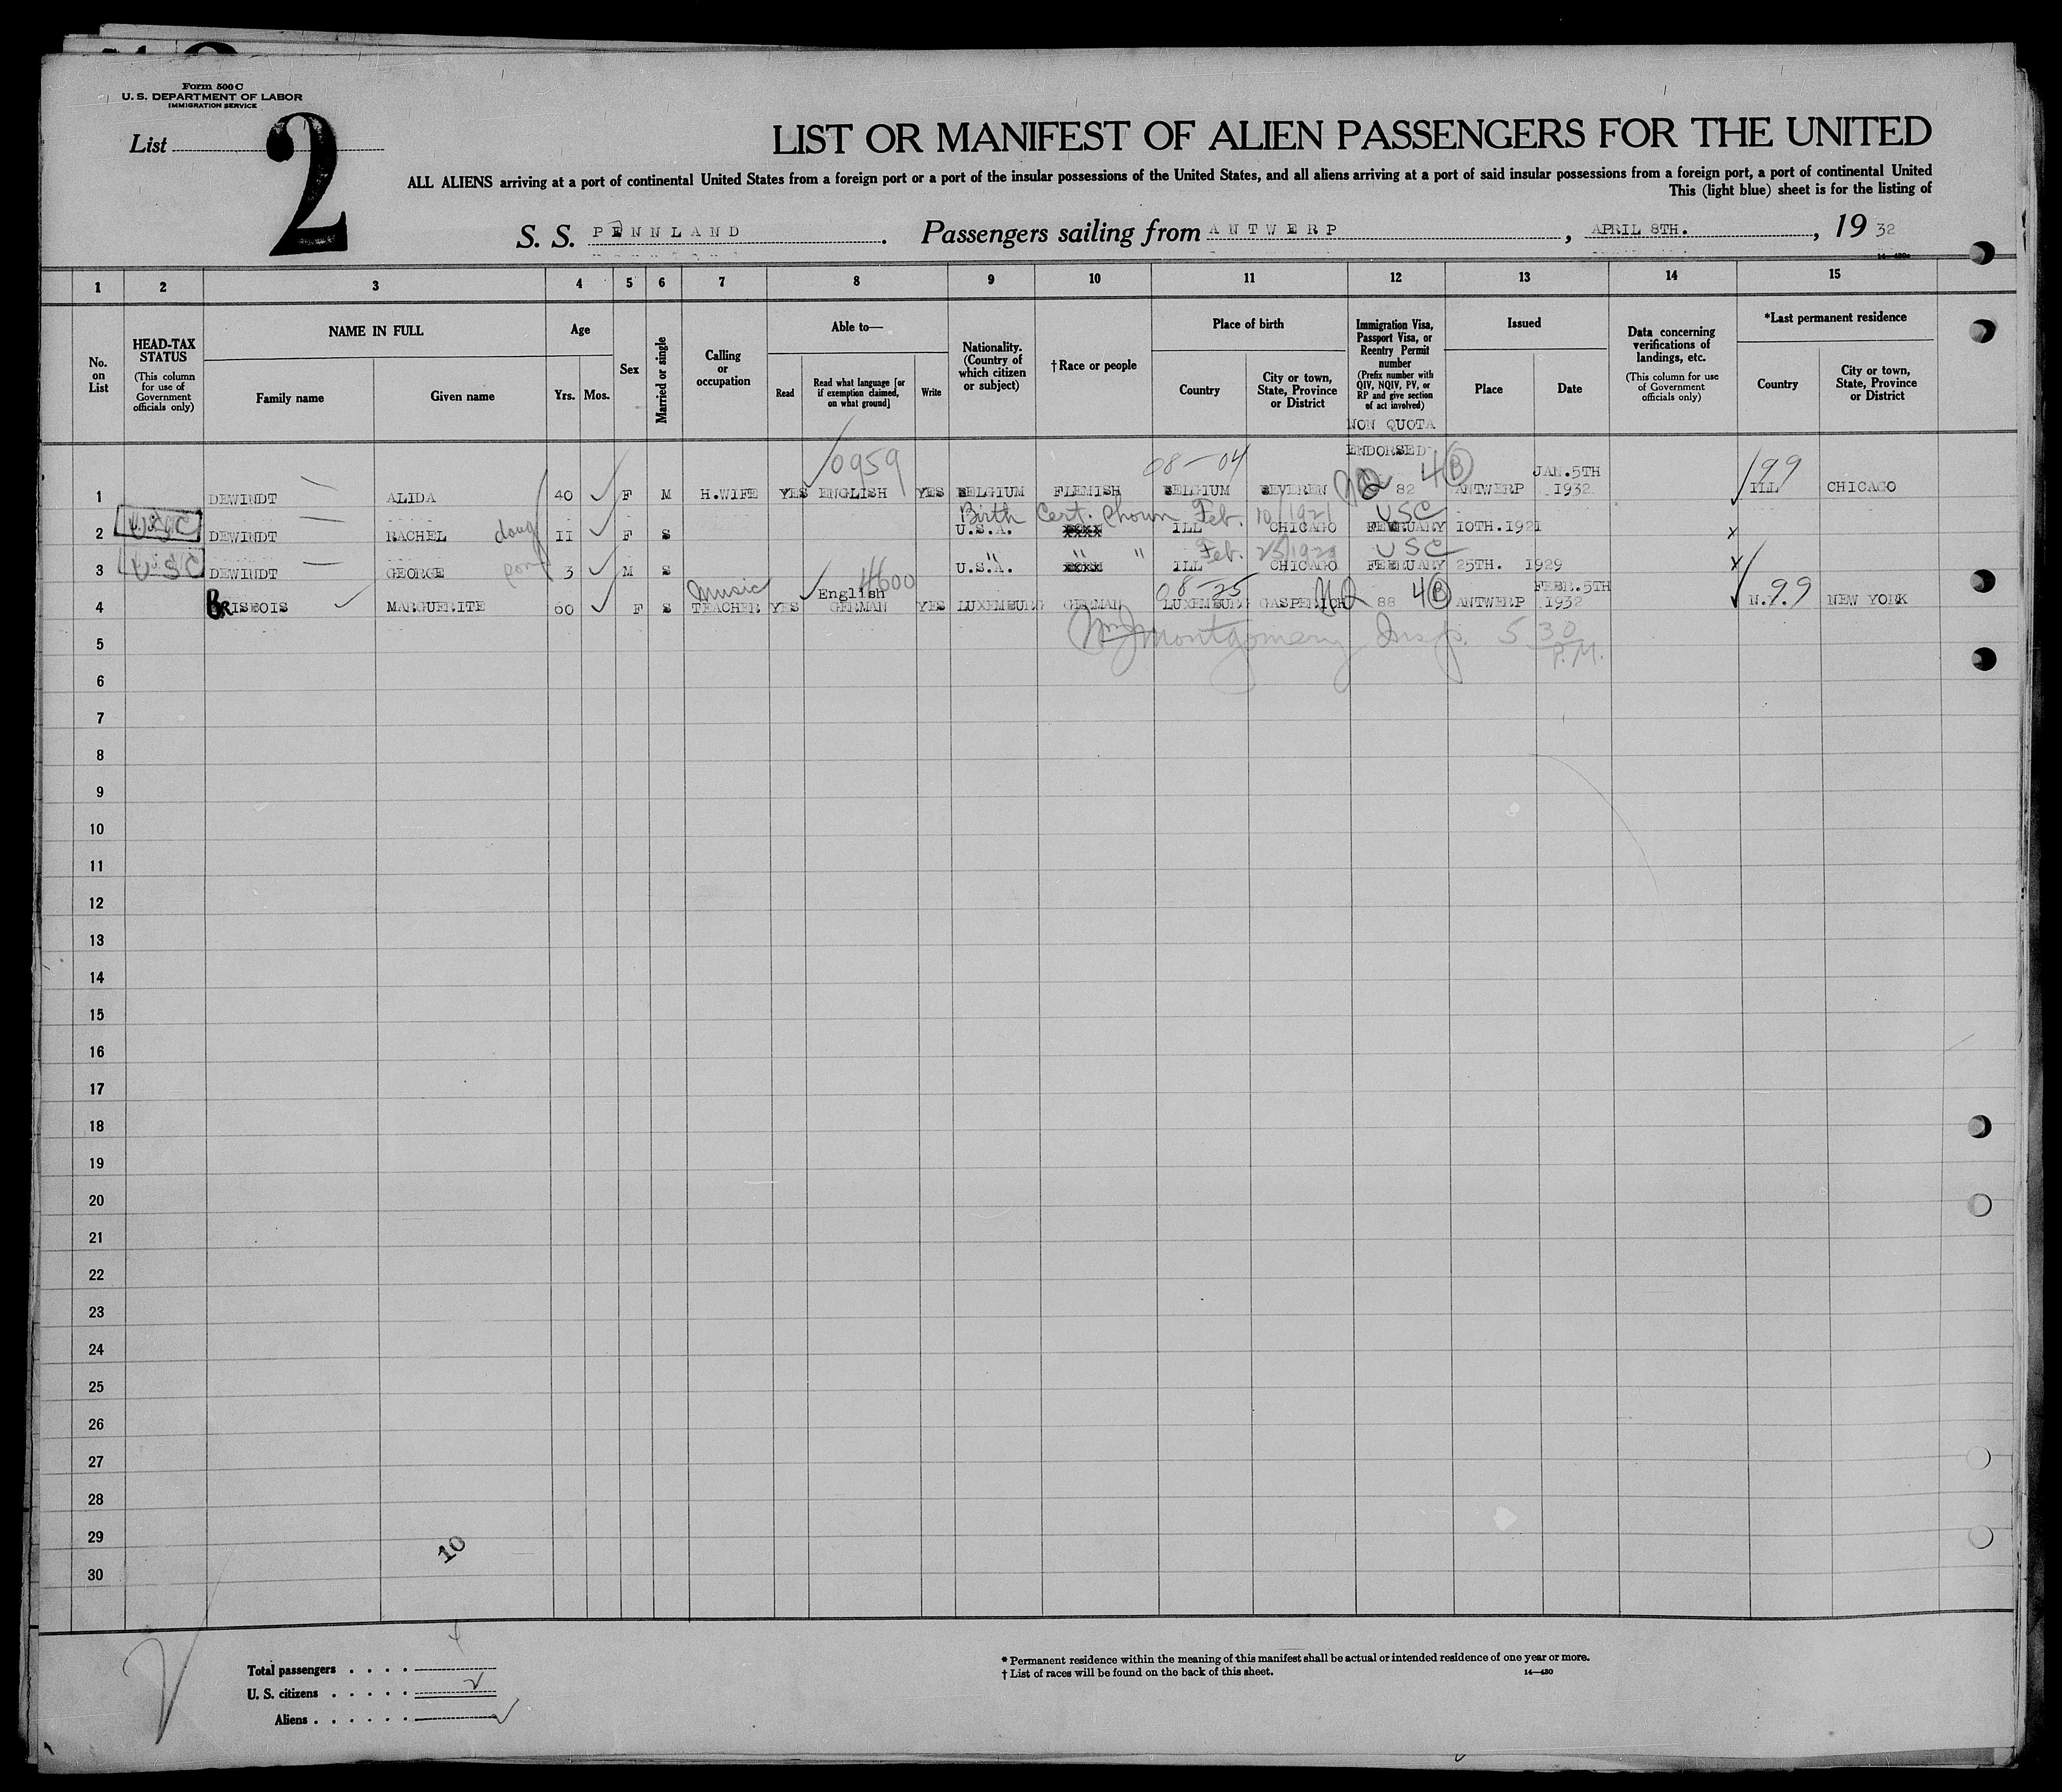 Form 500 C
U. S. DEPARTMENT OF LABOR
IMMIGRATION SERVICE
List 2
LIST OR MANIFEST OF ALIEN PASSENGERS FOR THE UNITED
ALL ALIENS arriving at a port of continental United States from a foreign port or a port of the insular possessions of the United States, and all aliens arriving at a port of said insular possessions from a foreign port, a port of continental United
This (light blue) sheet is for the listing of
S. S. PENNLAND. Passengers sailing from ANTWERP, APRIL 8TH., 19 32
1 2 3 4 5 6 7 8 9 10 11 12 13 14 15
No. on List
HEAD-TAX STATUS (This column for use of Government officials only)
NAME IN FULL
Family name
Given name
Age
Yrs. Mos.
Sex
Married or single
Calling or occupation
Able to—
Read
Read what language [or if exemption claimed, on what ground]
Write
Nationality. (Country of which citizen or subject)
†Race or people
Place of birth
Country
City or town, State, Province or District
Immigration Visa, Passport Visa, or Reentry Permit number (Prefix number with QIV, NQIV, PV, or RP and give section of act involved)
NON QUOTA
ENDORSED
Issued
Place
Date
Data concerning verifications of landings, etc. (This column for use of Government officials only)
*Last permanent residence
Country
City or town, State, Province or District
0959 08-04 4 B JAN.5TH 99
1 DEWINDT ALIDA 40 F M H.WIFE YES ENGLISH YES BELGIUM FLEMISH BELGIUM BEVEREN 82 ANTWERP 1932 ILL CHICAGO
Birth Cert. shown Feb. 10/1921 USC
2 USC DEWINDT RACHEL daug 11 F S U.S.A. xxxx ILL CHICAGO FEBRUARY 10TH.1921 x
" " " Feb. 25/1929 USC
3 USC DEWINDT GEORGE son 3 M S U.S.A. xxxx ILL CHICAGO FEBRUARY 25TH. 1929 x
Music English 4600 08-25 NQ 4 B FEBR.5TH
4 BRISBOIS MARGUERITE 60 F S TEACHER YES GERMAN YES LUXEMBURG GERMAN LUXEMBURG GASPERICH 88 ANTWERP 1932 N.Y. 99 NEW YORK
5 Wm J Montgomery Insp. 5 30 P.M.
6
7
8
9
10
11
12
13
14
15
16
17
18
19
20
21
22
23
24
25
26
27
28
29
30
10
Total passengers . . . . 4
U. S. citizens . . . . . 2
Aliens . . . . . .
* Permanent residence within the meaning of this manifest shall be actual or intended residence of one year or more.
† List of races will be found on the back of this sheet.
14—430